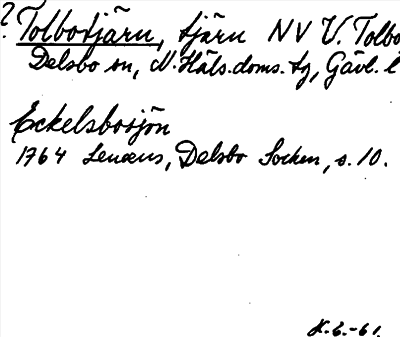 ? Tolbotjärn, tjärn NV V. Tolbo
Delsbo sn, N. Häls. doms. tg, Gävl. l
Eckelsbosjön
1764 Lenæus, Delsbo Socken, s. 10.
K.E.-61.